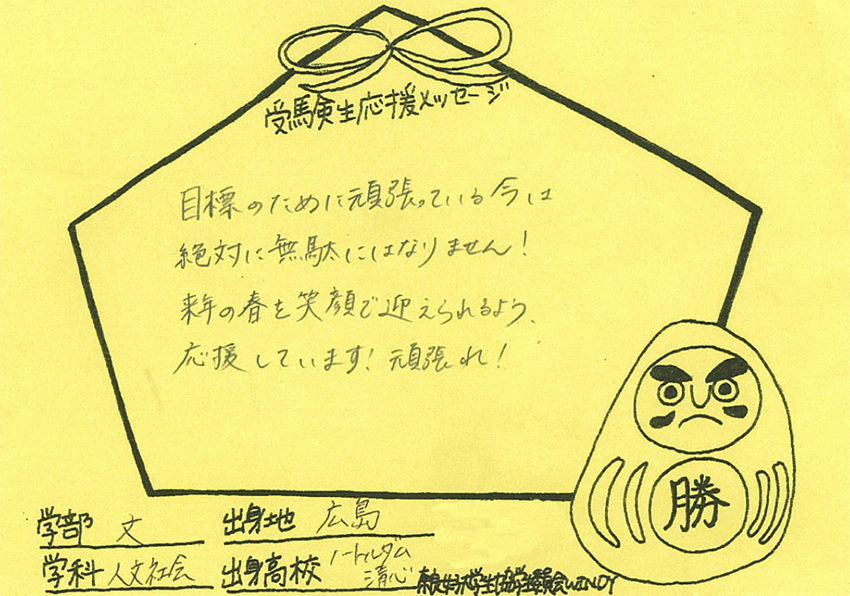 受験生応援メッセージ
目標のために頑張っている今は
絶対に無駄にはなりません!
来年の春を笑顔で迎えられるよう、
応援しています!頑張れ!
勝
学部 文 出身地 広島
学科 人文社会 出身高校 ノートルダム清心
奈良女子大学生協学生委員会WINDY